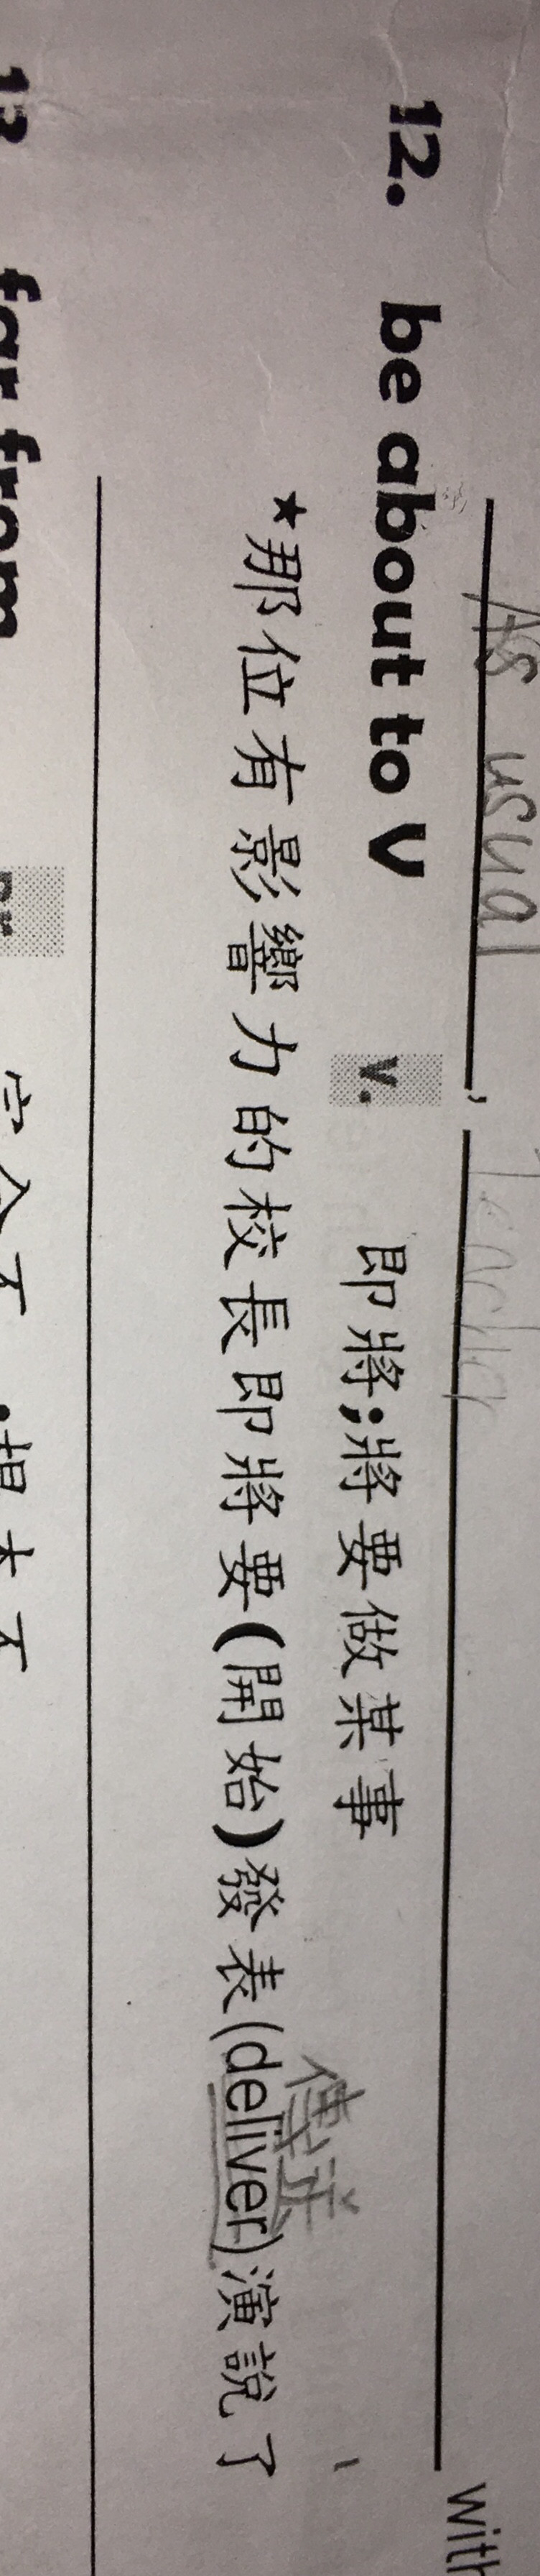 As usual, Teacher with
12. be about to V v. 即將;將要做某事
傳送
★那位有影響力的校長即將要(開始)發表(deliver)演說了
13 far from